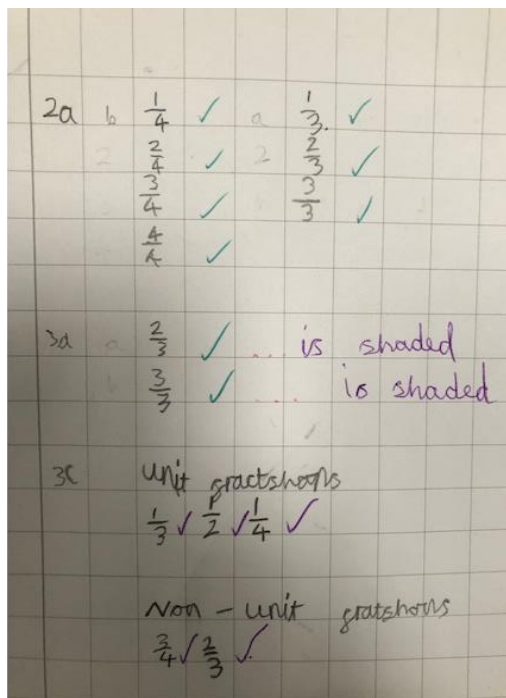 2a b 1/4 ✓ a 1/3. ✓
2/4 ✓ 2 2/3 ✓
3/4 ✓ 3/3 ✓
4/4 ✓
3a a 2/3 ✓ ... is shaded
b 3/3 ✓ .... is shaded
3c Unit gractshons
1/3 ✓ 1/2 ✓ 1/4 ✓
Non - unit gratshons
3/4 ✓ 2/3 ✓